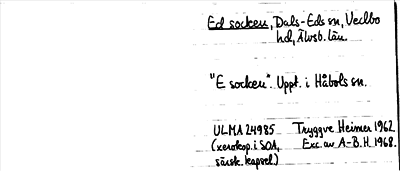 Ed socken, Dals-Eds sn, Vedbo
hd, Älvsb. län.
"E socken". Uppt. i Håbols sn.
ULMA 24985 Tryggve Heimer 1962
(xerokop. i SOA, Exc. av A-B. H. 1968.
särsk. kapsel)